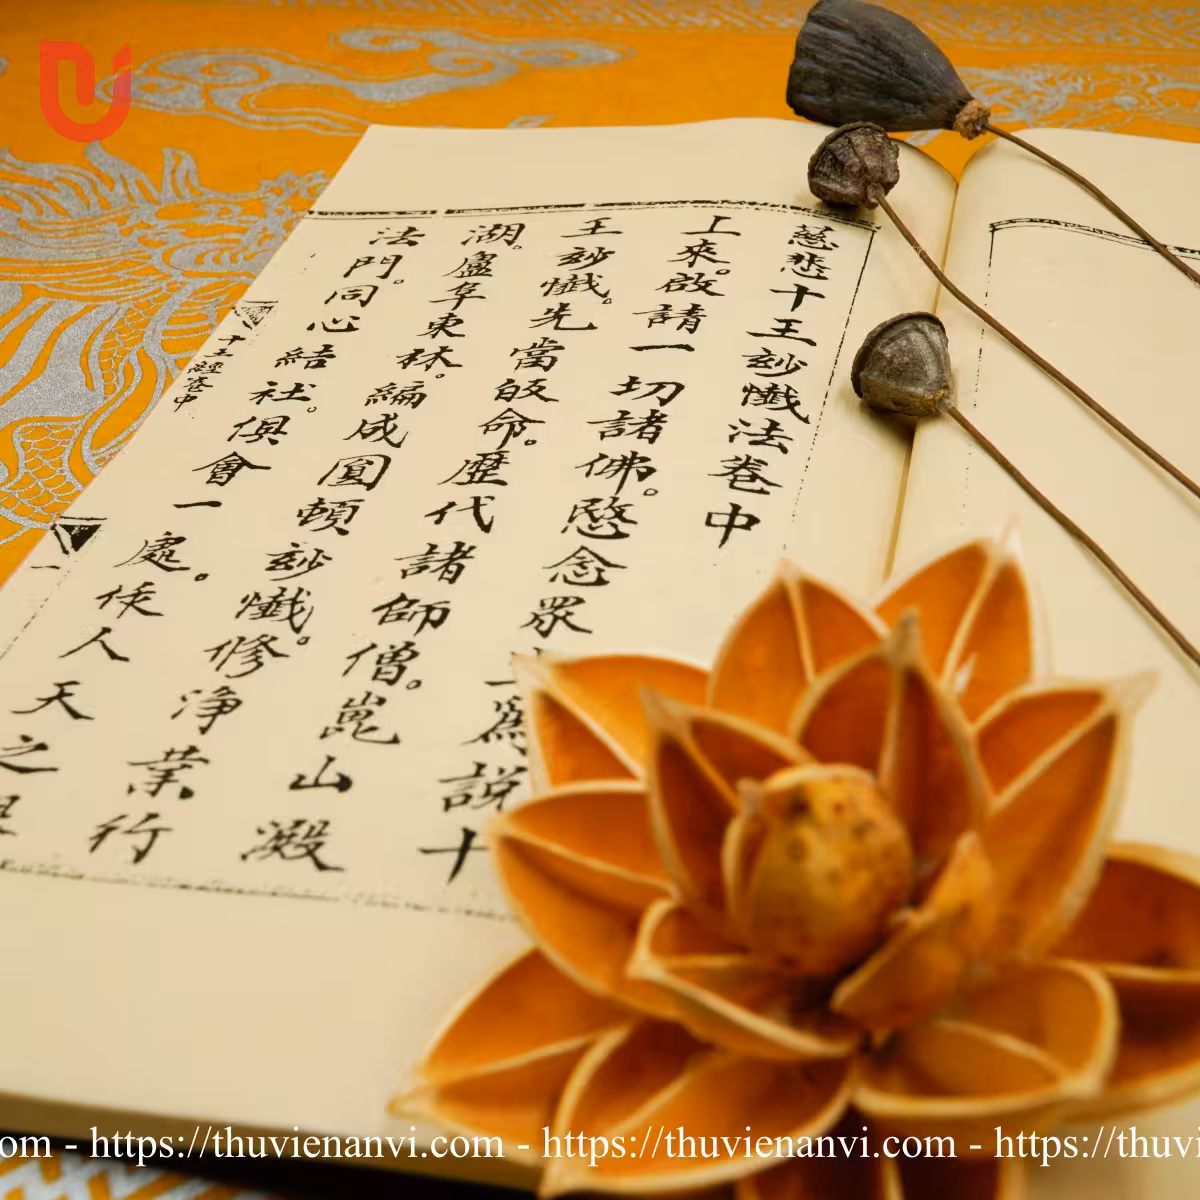 慈悲十王玅懺法卷中
上來啟請一切諸佛。愍念眾
爲說十
王玅懺。先當皈命。歷代諸師僧。崑山澱
湖。盧阜東林。編成圓頓玅懺。修淨業行
法門。同心結社。俱會一處。俟人天之
十王經卷中
一
https://thuvienanvi.com - https://thuvienanvi.com - https://thuvi